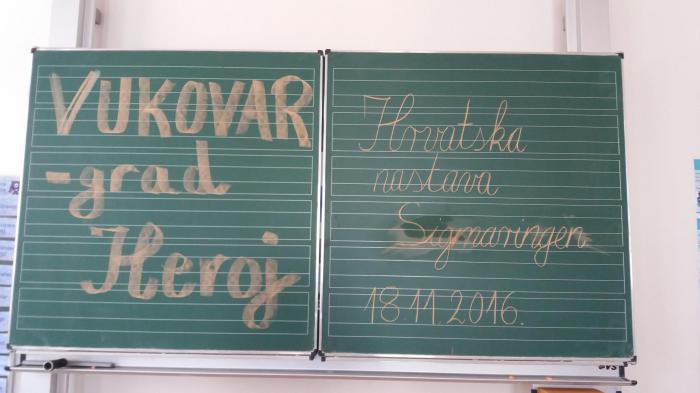 VUKOVAR
-grad
Heroj
Hrvatska
nastava
Sigmaringen
18.11.2016.